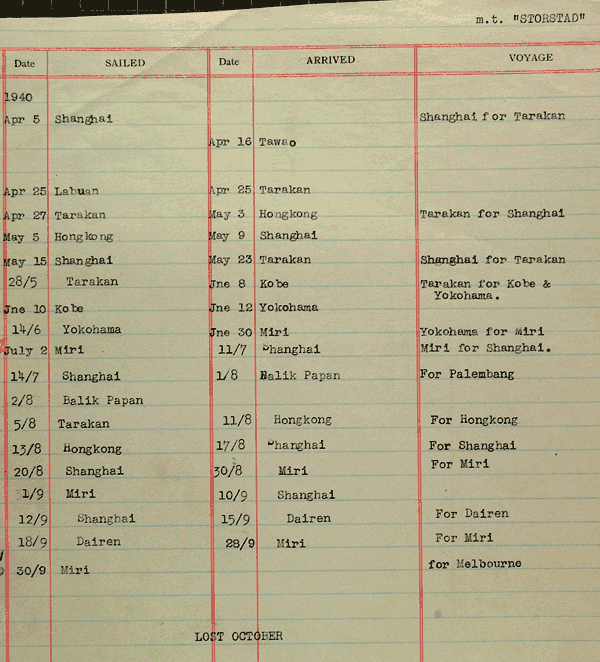 m.t. "STORSTAD"
Date SAILED Date ARRIVED VOYAGE
1940
Apr 5 Shanghai Shanghai for Tarakan
Apr 16 Tawao
Apr 25 Labuan Apr 25 Tarakan
Apr 27 Tarakan May 3 Hongkong Tarakan for Shanghai
May 5 Hongkong May 9 Shanghai
May 15 Shanghai May 23 Tarakan Shanghai for Tarakan
28/5 Tarakan Jne 8 Kobe Tarakan for Kobe &
Yokohama.
Jne 10 Kobe Jne 12 Yokohama
14/6 Yokohama Jne 30 Miri Yokohama for Miri
July 2 Miri 11/7 Shanghai Miri for Shanghai.
14/7 Shanghai 1/8 Balik Papan For Palembang
2/8 Balik Papan
5/8 Tarakan 11/8 Hongkong For Hongkong
13/8 Hongkong 17/8 Shanghai For Shanghai
20/8 Shanghai 30/8 Miri For Miri
1/9 Miri 10/9 Shanghai
12/9 Shanghai 15/9 Dairen For Dairen
18/9 Dairen 28/9 Miri For Miri
30/9 Miri for Melbourne
LOST OCTOBER